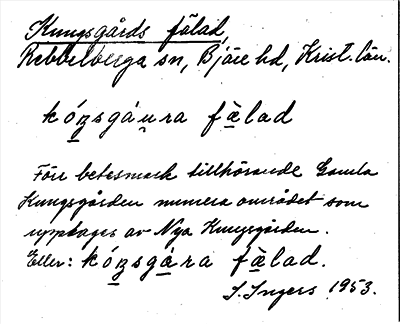 Kungsgårds fälad,
Rebbelberga sn, Bjäre hd, Krist. län.
kóngsgáura fälad
Förr betesmark tillhörande Gamla
Kungsgården numera området som
upptages av Nya Kungsgården.
Eller: kóngsgára fälad.
I. Ingers 1953.